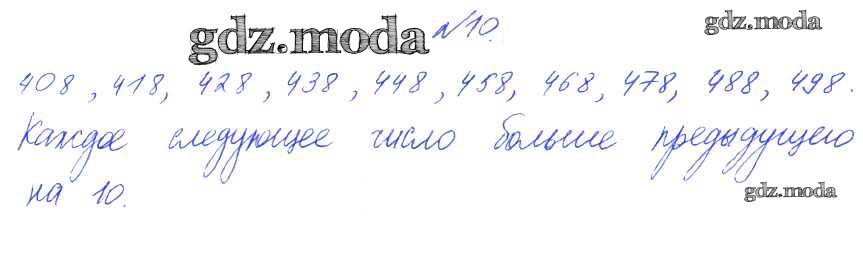 gdz.moda №10. gdz.moda
408, 418, 428, 438, 448, 458, 468, 478, 488, 498.
Каждое следующее число больше предыдущего
на 10. gdz.moda